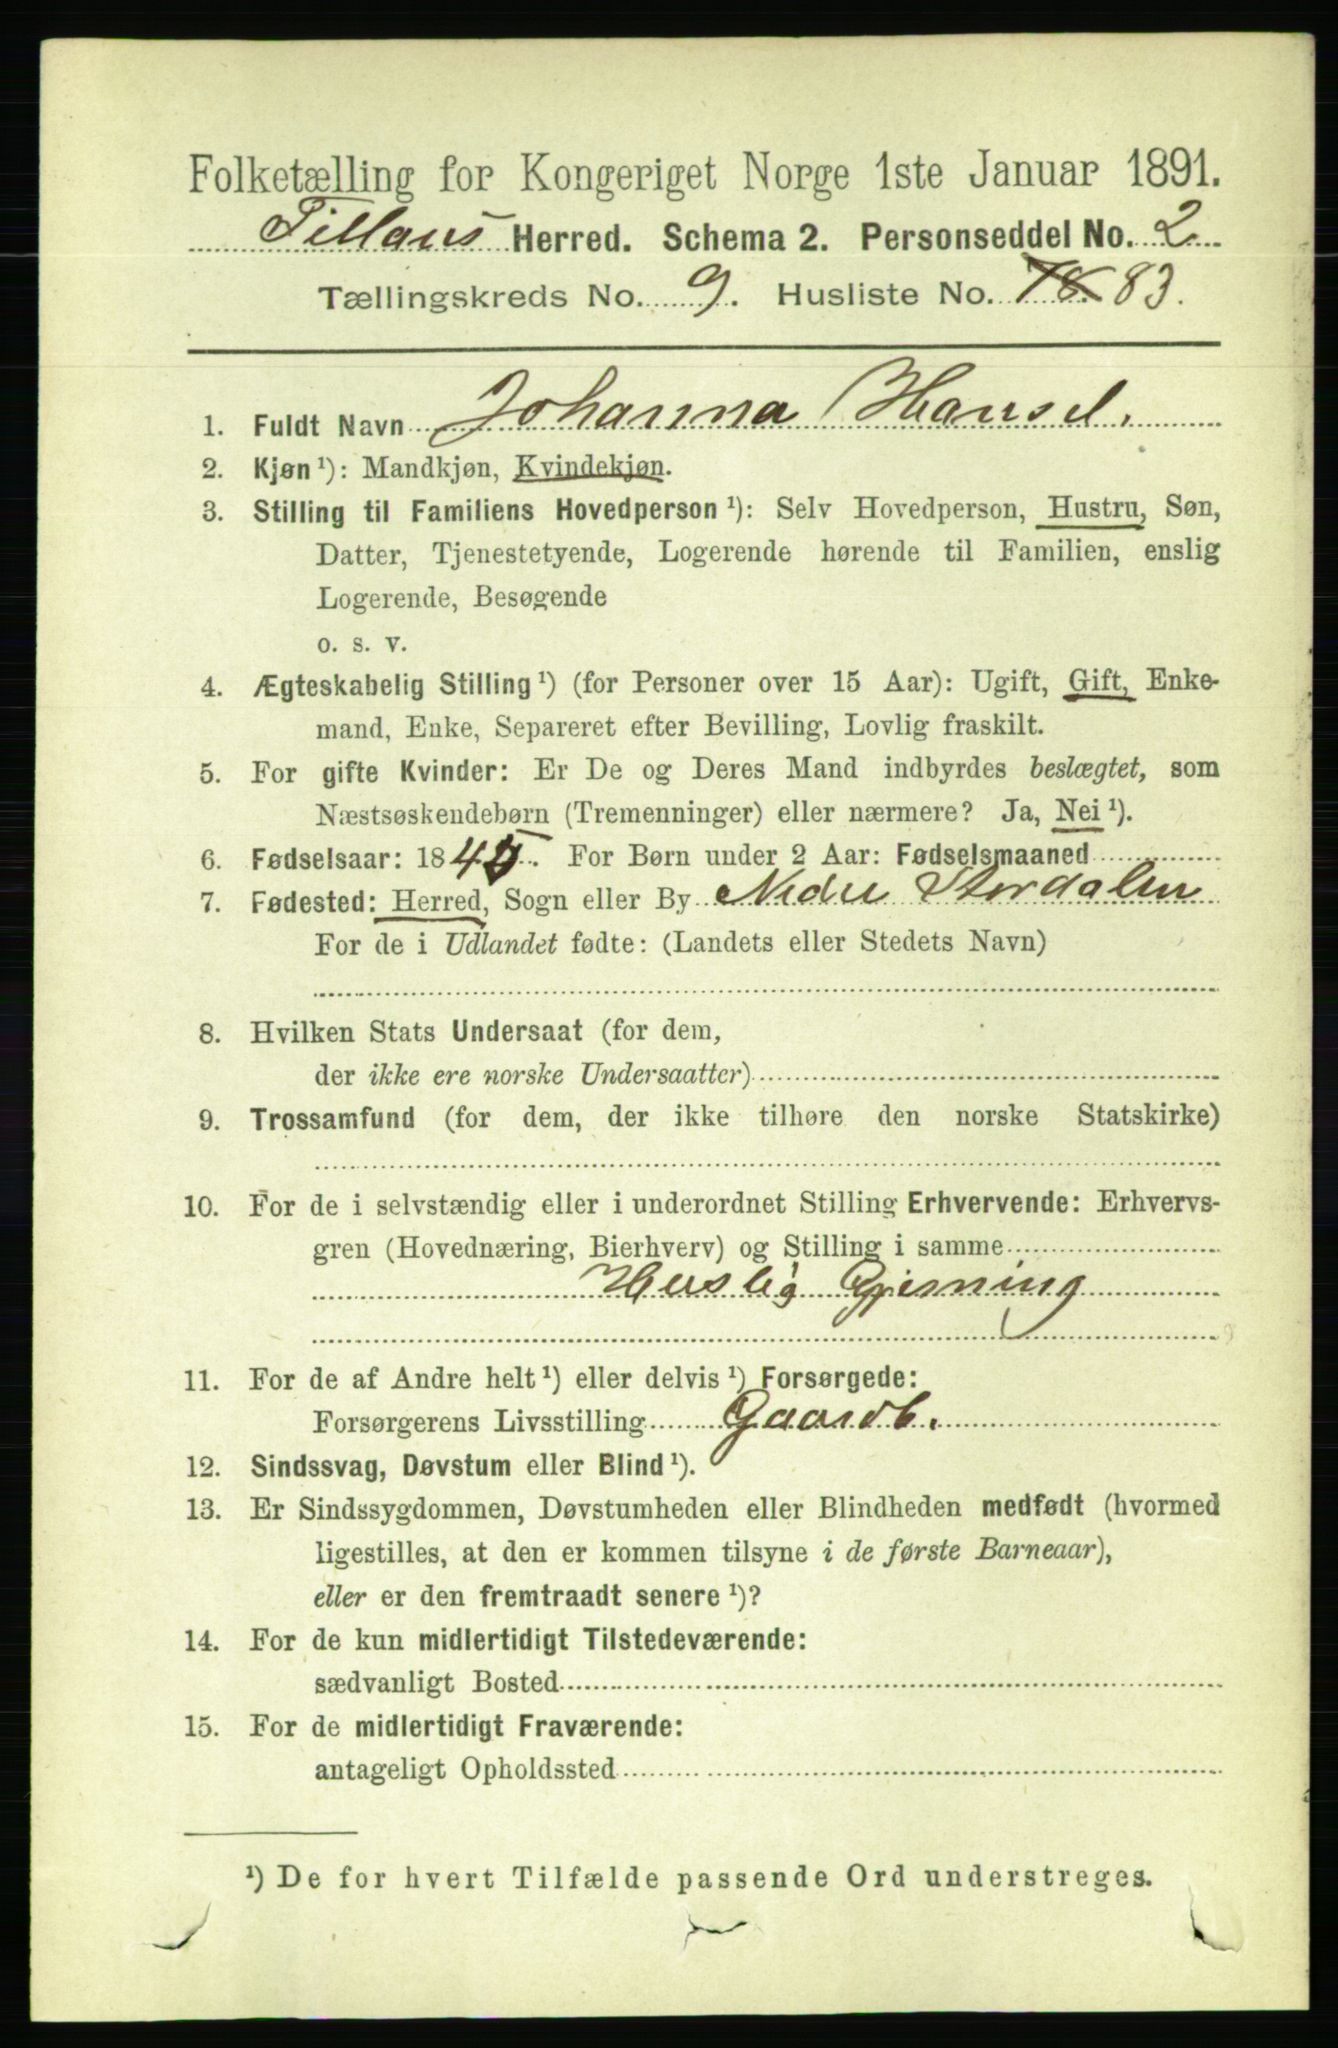 Folketælling for Kongeriget Norge 1ste Januar 1891.
Herred. Schema 2. Personseddel No. 2
Tællingskreds No. 9. Husliste No. 78 83.
1. Fuldt Navn Johanna Hansd.
2. Kjøn ¹): Mandkjøn, Kvindekjøn.
3. Stilling til Familiens Hovedperson ¹): Selv Hovedperson, Hustru, Søn,
Datter, Tjenestetyende, Logerende hørende til Familien, enslig
Logerende, Besøgende
o. s. v.
4. Ægteskabelig Stilling ¹) (for Personer over 15 Aar): Ugift, Gift, Enke-
mand, Enke, Separeret efter Bevilling, Lovlig fraskilt.
5. For gifte Kvinder: Er De og Deres Mand indbyrdes beslægtet, som
Næstsøskendebørn (Tremenninger) eller nærmere? Ja, Nei ¹).
6. Fødselsaar: 184 . For Børn under 2 Aar: Fødselsmaaned
7. Fødested: Herred, Sogn eller By Nedre Stordalen
For de i Udlandet fødte: (Landets eller Stedets Navn)
8. Hvilken Stats Undersaat (for dem,
der ikke ere norske Undersaatter)
9. Trossamfund (for dem, der ikke tilhøre den norske Statskirke)
10. For de i selvstændig eller i underordnet Stilling Erhvervende: Erhvervs-
gren (Hovednæring, Bierhverv) og Stilling i samme
Huslig Gjerning
11. For de af Andre helt ¹) eller delvis ¹) Forsørgede:
Forsørgerens Livsstilling Gaardb.
12. Sindssvag, Døvstum eller Blind ¹).
13. Er Sindssygdommen, Døvstumheden eller Blindheden medfødt (hvormed
ligestilles, at den er kommen tilsyne i de første Barneaar),
eller er den fremtraadt senere ¹)?
14. For de kun midlertidigt Tilstedeværende:
sædvanligt Bosted
15. For de midlertidigt Fraværende:
antageligt Opholdssted
¹) De for hvert Tilfælde passende Ord understreges.